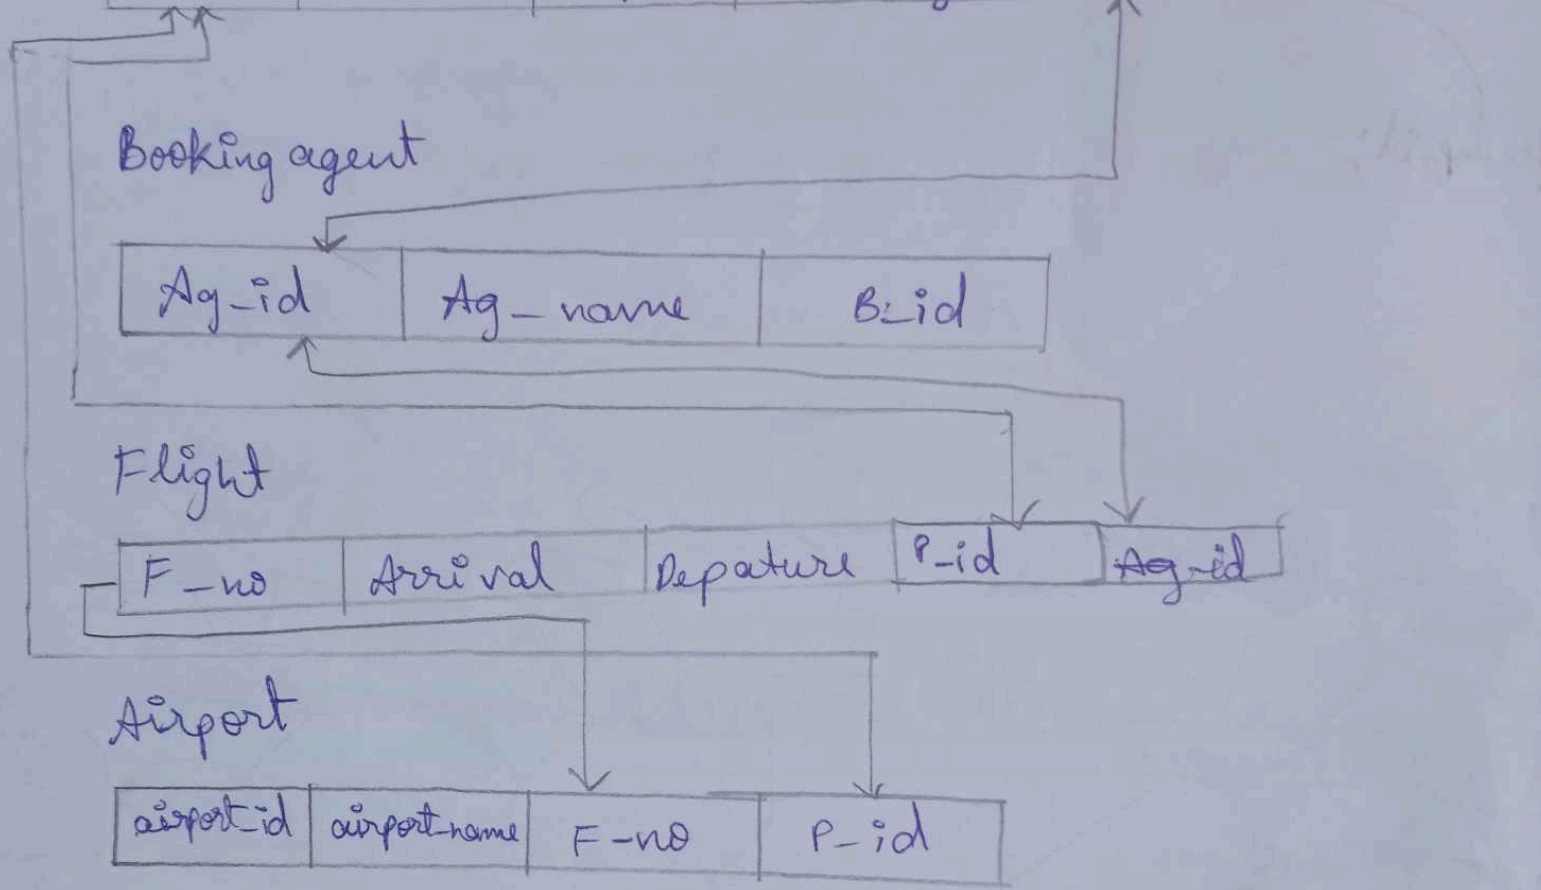 Booking agent
Ag_id Ag_name B_id
Flight
F_no Arrival Depature P_id Ag_id
Airport
airport_id airport_name F_no P_id